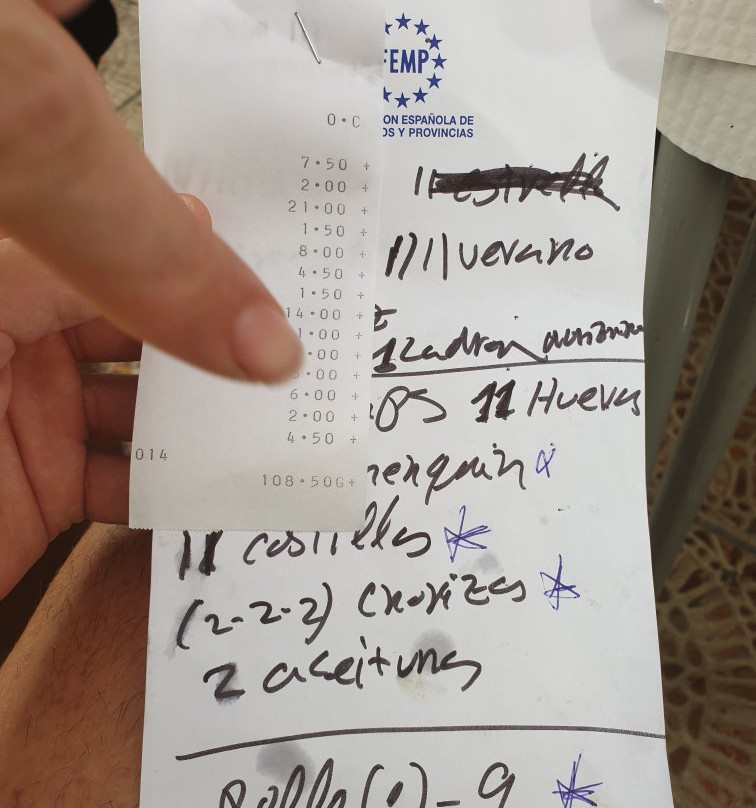 FEMP
ON ESPAÑOLA DE
OS Y PROVINCIAS
0•C
7•50 +
2•00 +
21•00 +
1•50 +
8•00 +
4•50 +
1•50 +
14•00 +
1•00 +
•00 +
•00 +
6•00 +
2•00 +
4•50 +
014
108•50G+
1111 verano
11 Huevos
11 costillas
(2-2-2) chorizos
2 aceitunas
Pollo (1) - 9